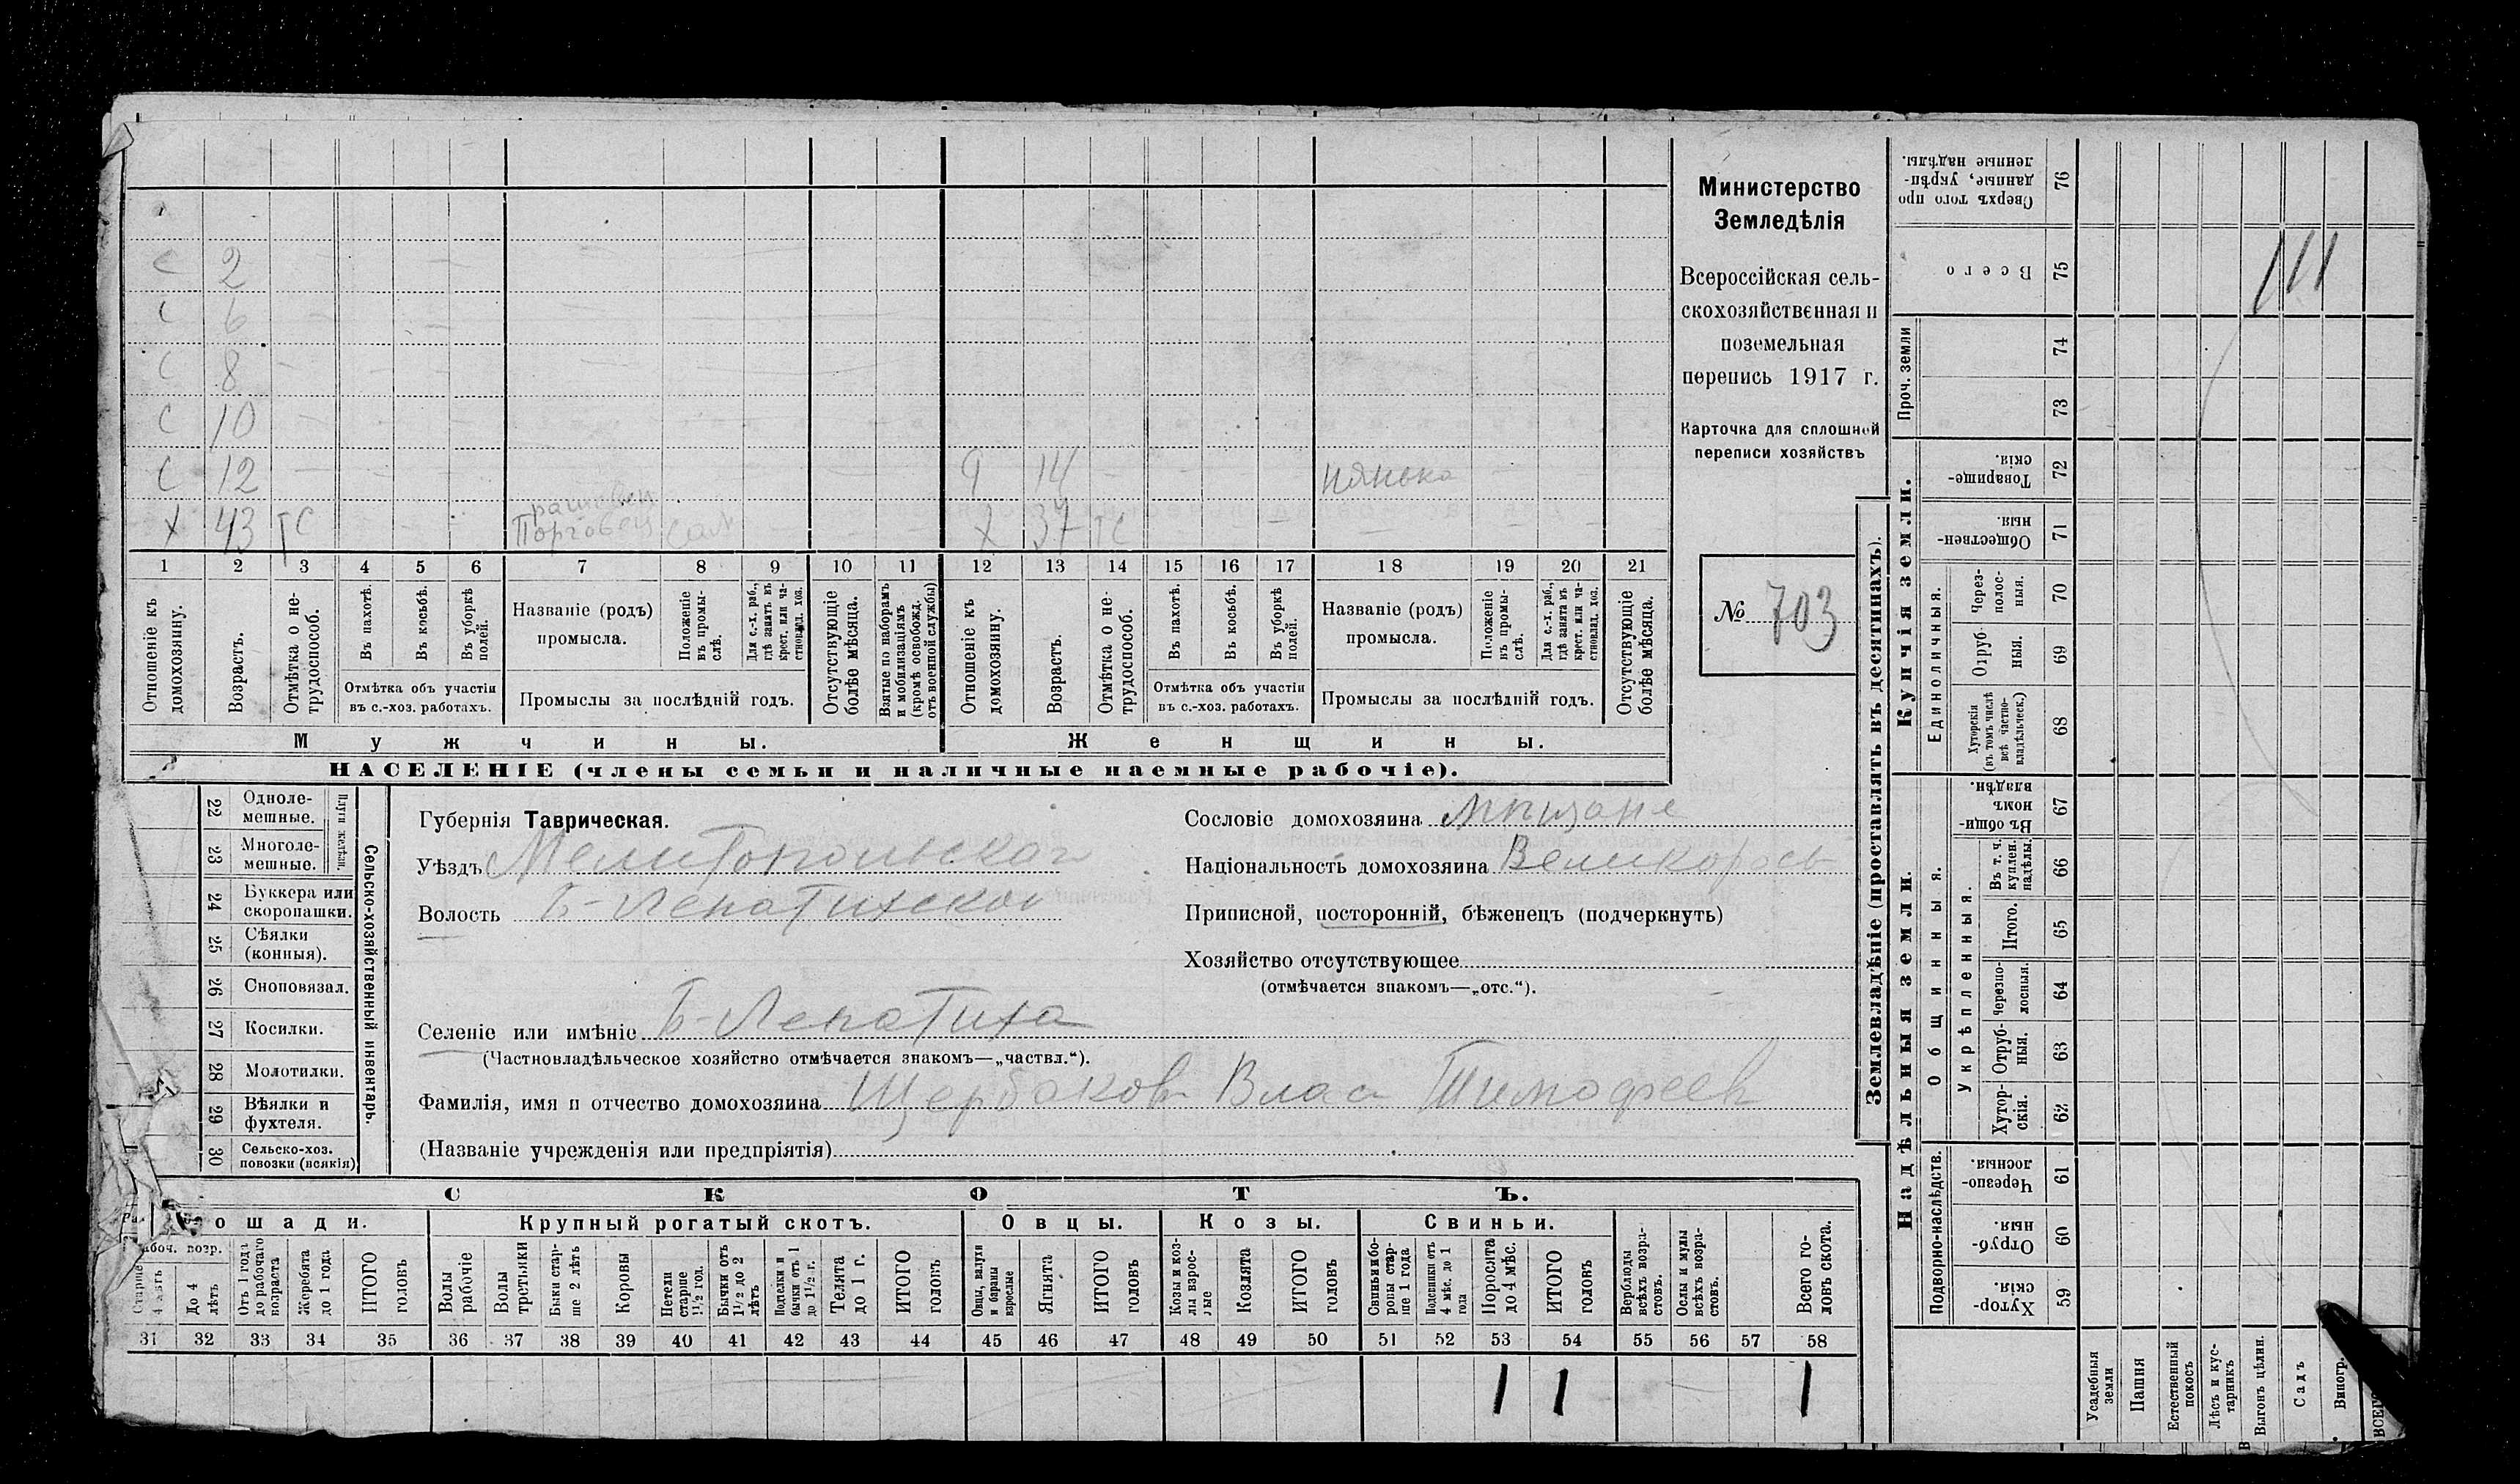 С 2
С 6
С 8
С 10
С 12 9 14 нянька
Х 43 ТС Торговец Сам Х 37 ТС
1 2 3 4 5 6 7 8 9 10 11 12 13 14 15 16 17 18 19 20 21
Отношеніе къ домохозяину.
Возрастъ.
Отмѣтка о не-трудоспособ.
Въ пахотѣ.
Въ косьбѣ.
Въ уборкѣ полей.
Отмѣтка объ участіи
въ с.-хоз. работахъ.
Названіе (родъ)
промысла.
Положеніе въ промы-слѣ.
Для с.-х. раб., гдѣ занятъ въ крест. или ча-стновлад. хоз.
Промыслы за послѣдній годъ.
Отсутствующіе болѣе мѣсяца.
Взятые по наборамъ и мобилизаціямъ (кромѣ освобожд. отъ военной службы)
Отношеніе къ домохозяину.
Возрастъ.
Отмѣтка о не-трудоспособ.
Въ пахотѣ.
Въ косьбѣ.
Въ уборкѣ полей.
Отмѣтка объ участіи
въ с.-хоз. работахъ.
Названіе (родъ)
промысла.
Положеніе въ промы-слѣ.
Для с.-х. раб., гдѣ занята въ крест. или ча-стновлад. хоз.
Промыслы за послѣдній годъ.
Отсутствующіе болѣе мѣсяца.
Мужчины. Женщины.
НАСЕЛЕНІЕ (члены семьи и наличные наемные рабочіе).
Министерство
Земледѣлія
Всероссійская сель-
скохозяйственная и
поземельная
перепись 1917 г.
Карточка для сплошной
переписи хозяйствъ
№ 703
22 Одноле-мешные.
23 Многоле-мешные.
Плуги желѣзн.
24 Буккера или скоропашки.
25 Сѣялки (конныя).
26 Сноповязал.
27 Косилки.
28 Молотилки.
29 Вѣялки и фухтеля.
30 Сельско-хоз. повозки (всякія)
Сельско-хозяйственный инвентарь.
Губернія Таврическая.
Уѣздъ Мелитопольской
Волость Б-Лепатихской
Селеніе или имѣніе Б-Лепатиха
(Частновладѣльческое хозяйство отмѣчается знакомъ—„частвл.“).
Фамилія, имя и отчество домохозяина Щербаковъ Влас Тимофеевъ
(Названіе учрежденія или предпріятія)
Сословіе домохозяина мѣщане
Національность домохозяина Великоросъ
Приписной, посторонній, бѣженецъ (подчеркнуть)
Хозяйство отсутствующее
(отмѣчается знакомъ—„отс.“).
СКОТЪ.
ошади. Крупный рогатый скотъ. Овцы. Козы. Свиньи.
абоч. возр.
Старше 4 лѣтъ
До 4 лѣтъ
Отъ 1 года до рабочаго возраста
Жеребята до 1 года
ИТОГО головъ
Волы рабочіе
Волы третьяки
Быки стар-ше 2 лѣтъ
Коровы
Нетели старше 1½ год.
Бычки отъ 1½ до 2 лѣтъ
Подтелки и бычки отъ 1 до 1½ г.
Телята до 1 г.
ИТОГО головъ
Овцы, валухи и бараны взрослые
Ягнята
ИТОГО головъ
Козы и коз-лы взрос-лые
Козлята
ИТОГО головъ
Свиньи и бо-ровы стар-ше 1 года
Подсвинки отъ 4 мѣс. до 1 года
Поросята до 4 мѣс.
ИТОГО головъ
Верблюды всѣхъ возра-стовъ.
Ослы и мулы всѣхъ возра-стовъ.
Всего го-ловъ скота.
31 32 33 34 35 36 37 38 39 40 41 42 43 44 45 46 47 48 49 50 51 52 53 54 55 56 57 58
1 1 1
Землевладѣніе (проставлять въ десятинахъ).
Надѣльныя земли. Купчія земли. Проч. земли
Подворно-наслѣдств.
Общинныя.
Укрѣпленныя.
Единоличныя.
Хутор-скія. 59
Отруб-ныя. 60
Черезпо-лосныя. 61
Хутор-скія. 62
Отруб-ныя. 63
Черезпо-лосныя. 64
Итого. 65
Въ т. ч. куплен. надѣлы. 66
Въ общи-номъ владѣн. 67
Хуторскія (въ томъ числѣ всѣ частно-владѣльческ.) 68
Отруб-ныя. 69
Через-полос-ныя. 70
Обществен-ныя. 71
Товарище-скія. 72
73
74
Всего 75
Сверхъ того про-данные, укрѣп-ленные надѣлы. 76
Усадебныя земли
Пашня
Естественный покосъ
Лѣсъ и кус-тарникъ
Выгонъ цѣлин.
Садъ
Виногр.
ВСЕГО